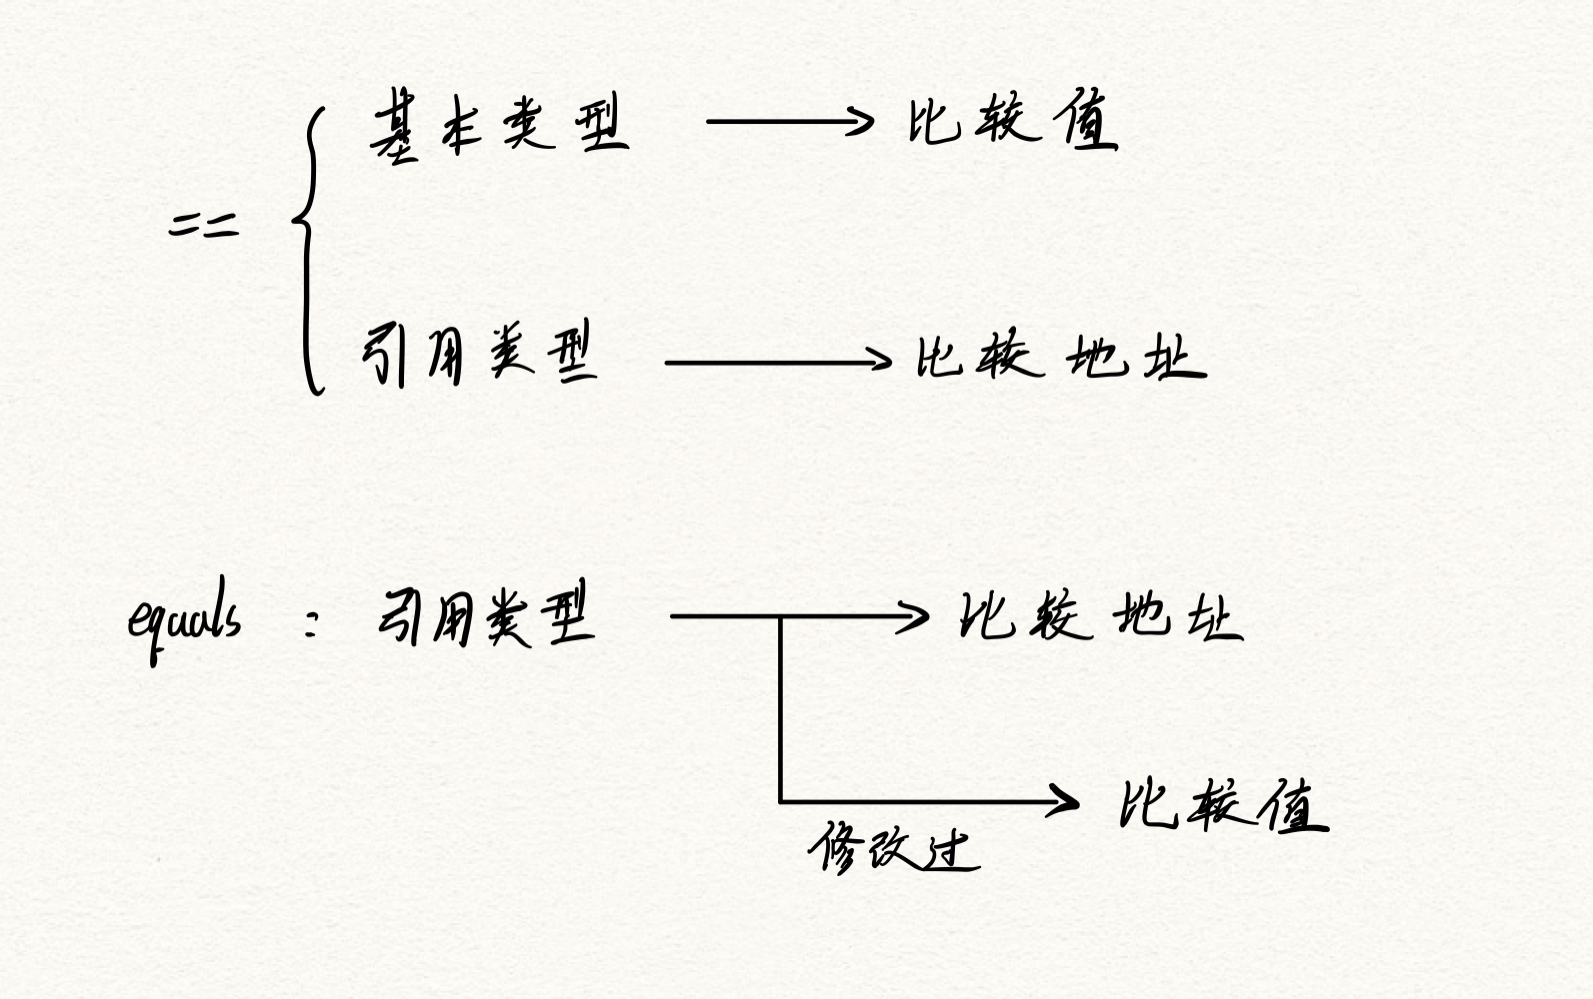 基本类型 → 比较值
==
引用类型 → 比较地址
equals : 引用类型 → 比较地址
比较值
修改过